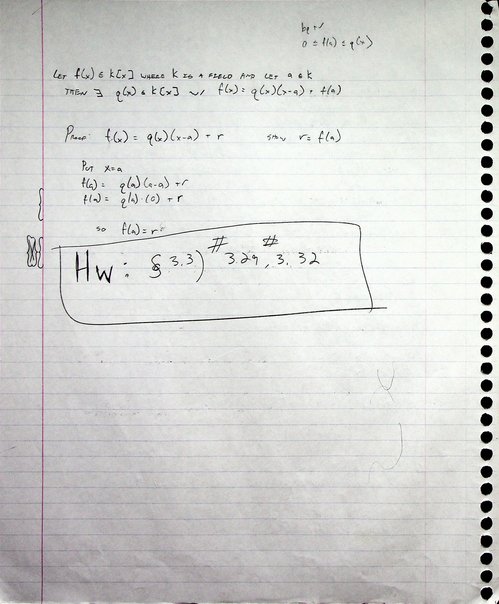 bq + r
0 ≤ f(a) ≤ q(x)
LET f(x) ∈ k[x] WHERE k IS A FIELD AND LET a ∈ k
THEN ∃ q(x) ∈ k[x] w/ f(x) = q(x)(x-a) + f(a)
PROOF: f(x) = q(x)(x-a) + r SHOW r = f(a)
PUT x=a
f(a) = q(a)(a-a) + r
f(a) = q(a)·(0) + r
SO f(a) = r
HW: § 3.3) # 3.29, # 3.32